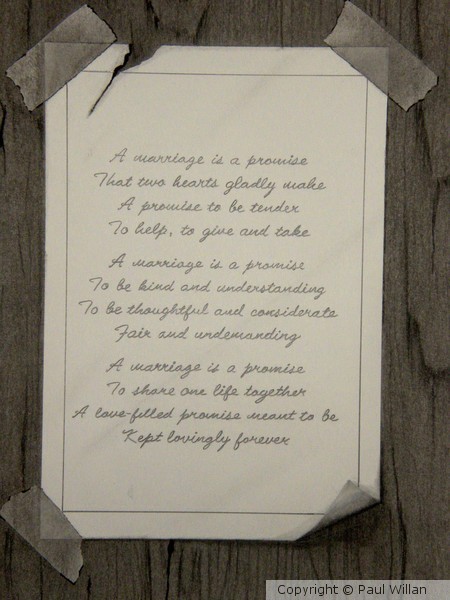 A marriage is a promise
That two hearts gladly make
A promise to be tender
To help, to give and take
A marriage is a promise
To be kind and understanding
To be thoughtful and considerate
Fair and undemanding
A marriage is a promise
To share one life together
A love-filled promise meant to be
Kept lovingly forever
Copyright © Paul Willan